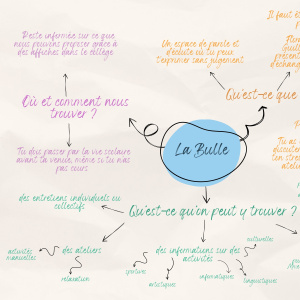 Reste informée sur ce que
nous pouvons proposer grâce à
des affiches dans le collège
Un espace de parole et
d'écoute où tu peux
t'exprimer sans jugement
Il faut
Où et comment nous
trouver ?
Qu'est-ce que
La Bulle
Tu dois passer par la vie scolaire
avant ta venue, même si tu n'as
pas cours
des entretiens individuels ou
collectifs
Qu'est-ce qu'on peut y trouver ?
des ateliers
activités
manuelles
relaxation
des informations sur des
activités
culturelles
sportives
artistiques
informatiques
linguistiques